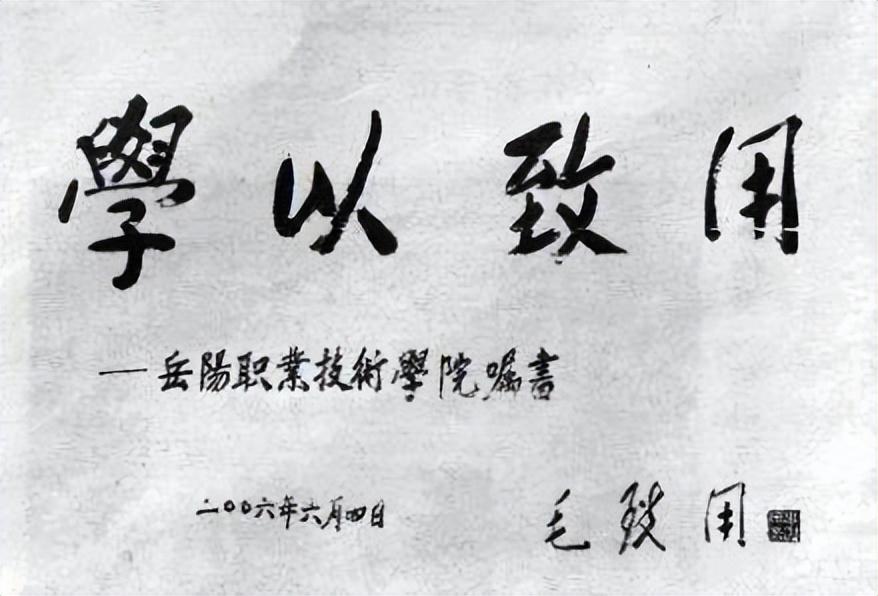 學以致用
—岳陽职業技術學院嘱書
二００六年六月四日
毛致用